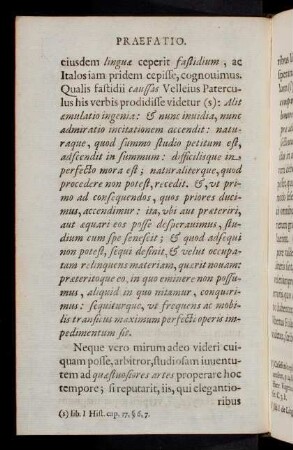 PRAEFATIO.
eiusdem linguæ ceperit fastidium, ac
Italos iam pridem cepisse, cognouimus.
Qualis fastidii caussas Velleius Patercu-
lus his verbis prodidisse videtur (s): Alit
æmulatio ingenia: & nunc inuidia, nunc
admiratio incitationem accendit: natu-
raque, quod summo studio petitum est,
adscendit in summum: difficilisque in
perfecto mora est; naturaliterque, quod
procedere non potest, recedit. &, vt pri-
mo ad consequendos, quos priores duci-
mus, accendimur: ita, vbi aut præteriri,
aut æquari eos posse desperauimus, stu-
dium cum spe senescit; & quod adsequi
non potest, sequi desinit, & velut occupa-
tam relinquens materiam, quærit nouam:
præteritoque eo, in quo eminere non possu-
mus, aliquid in quo nitamur, conquiri-
mus: sequiturque, vt frequens ac mobi-
lis transitus maximum perfecti operis im-
pedimentum sit.
Neque vero mirum adeo videri cui-
quam posse, arbitror, studiosam iuuentu-
tem ad quæstuosiores artes properare hoc
tempore; si reputarit, iis, qui elegantio-
ribus
(s) lib. I Hist. cap. 17. § 6. 7.